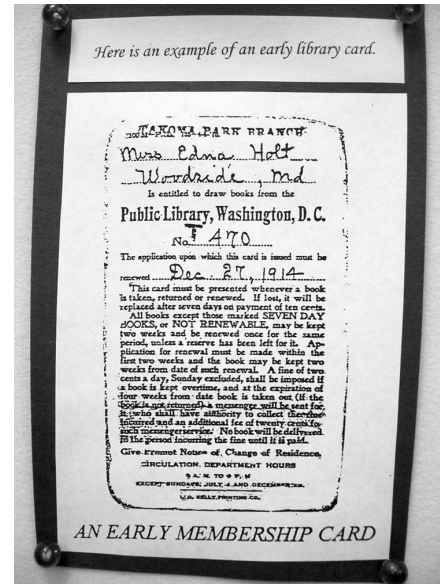 Here is an example of an early library card.
TAKOMA PARK BRANCH
Miss Edna Holt
Woodside, Md
Is entitled to draw books from the
Public Library, Washington, D. C.
No. T 470
The application upon which this card is issued must be
renewed Dec. 27, 1914
This card must be presented whenever a book
is taken, returned or renewed. If lost, it will be
replaced after seven days on payment of ten cents.
All books except those marked SEVEN DAY
BOOKS, or NOT RENEWABLE, may be kept
two weeks and be renewed once for the same
period, unless a reserve has been left for it. Ap-
plication for renewal must be made within the
first two weeks and the book may be kept two
weeks from date of such renewal. A fine of two
cents a day, Sunday excluded, shall be imposed if
a book is kept overtime, and at the expiration of
four weeks from date book is taken out (if the
book is not returned) a messenger will be sent for
it, who shall have authority to collect the fine
incured and an additional fee of twenty cents for
such messenger service. No book will be delivered
to the person incuring the fine until it is paid.
Give Prompt Notice of Change of Residence.
CIRCULATION DEPARTMENT HOURS
9 A. M. TO 9 P. M
EXCEPT SUNDAYS, JULY 4 AND DECEMBER 25.
KELLY PRINTING CO.
AN EARLY MEMBERSHIP CARD